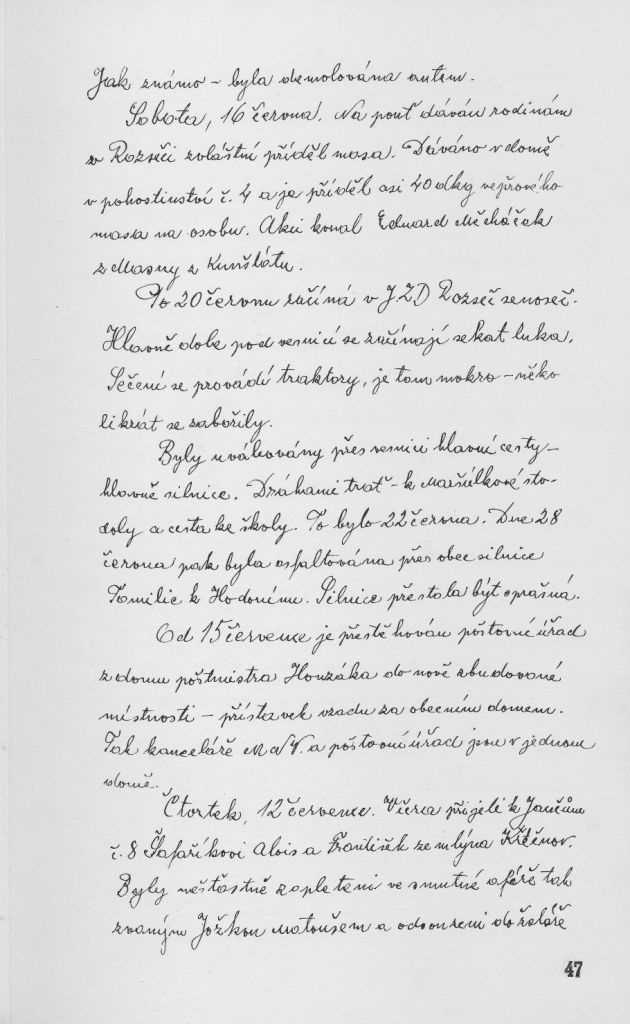 Jak známo - byla demolována autem.
Sobota, 16 června. Na pouť dáván rodinám
v Rozseči zvláštní příděl masa. Dáváno v domě
v pohostinství č. 4 a je příděl asi 40 dkg vepřového
masa na osobu. Akci konal Eduard Měcháček
z Masny z Kunštátu.
Po 20 červnu začíná v JZD Rozseč senoseč.
Hlavně dole pod vesnicí se začínají sekat luka.
Sečení se provádí traktory, je tam mokro - něko
likrát se zabořily.
Byly uválcovány přes vesnici hlavní cesty -
hlavně silnice. Drahami trať - k Maršálkově sto-
doly a cesta ke školy. To bylo 22 června. Dne 28
června pak byla asfaltována přes obec silnice
Tomilic k Hodonínu. Silnice přestala být sprašná.
Od 15 července je přestěhován poštovní úřad
z domu poštmistra Honzáka do nově zbudované
místnosti - přístavek vzadu za obecním domem.
Tak kanceláře M N V. a poštovní úřad jsou v jednom
domě.
Čtvrtek, 12 července. Včera přijeli k Jančům
č. 8 Šafaříkovi Alois a František ze mlýna Křtěnov.
Byly nešťastně zapleteni ve smutné aféře tak
zvaným Jožkou Matoušem a odsouzeni do žaláře
47